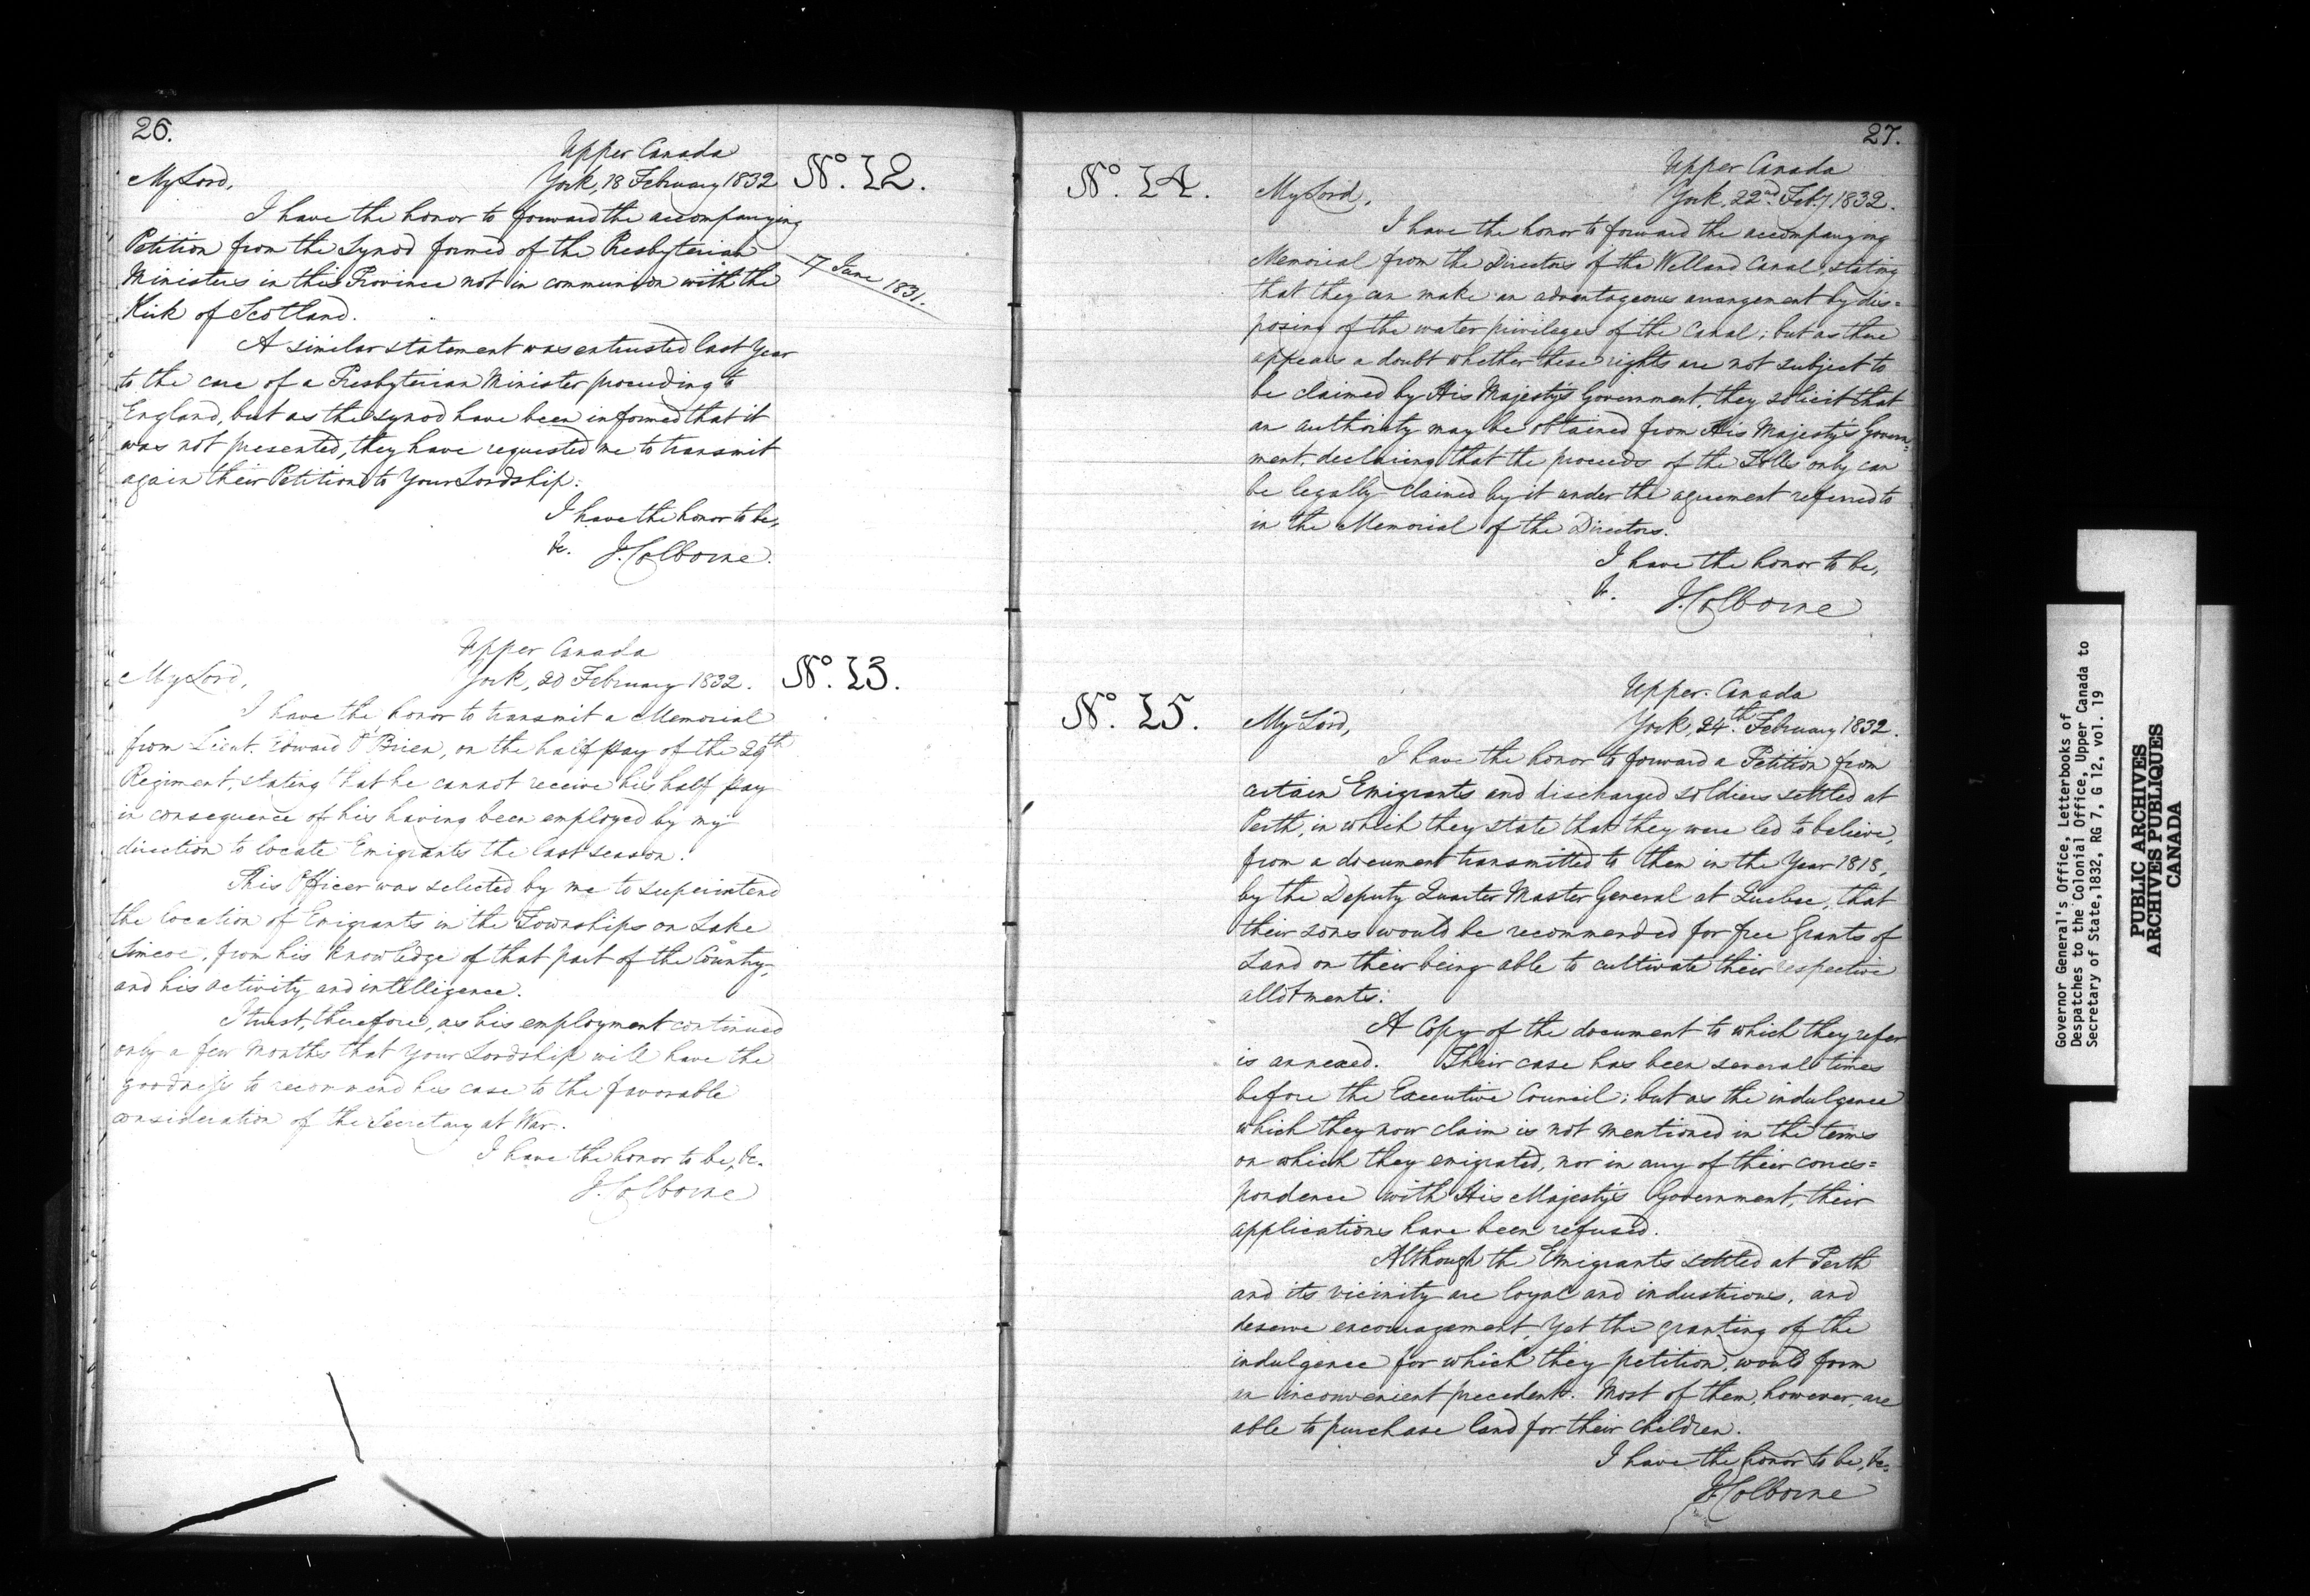 26.
Upper Canada
York, 18 February 1832
No. 12.
My Lord,
I have the honor to forward the accompanying
Petition from the Synod formed of the Presbyterian
Ministers in this Province not in communion with the
Kirk of Scotland.
7 June 1831.
A similar statement was entrusted last Year
to the care of a Presbyterian Minister proceeding to
England, but as the Synod have been informed that it
was not presented, they have requested me to transmit
again their Petition to Your Lordship.
I have the honor to be,
&c. J. Colborne.
Upper Canada
York, 20 February 1832.
No. 13.
My Lord,
I have the honor to transmit a Memorial
from Lieut. Edward O'Brien, on the half pay of the 29th
Regiment, stating that he cannot receive his half pay
in consequence of his having been employed by my
direction to locate Emigrants the last season.
This Officer was selected by me to superintend
the location of Emigrants in the Townships on Lake
Simcoe, from his knowledge of that part of the Country,
and his activity and intelligence.
I trust, therefore, as his employment continued
only a few Months that Your Lordship will have the
goodness to recommend his case to the favorable
consideration of the Secretary at War.
I have the honor to be, &c.
J. Colborne
27.
No. 14.
Upper Canada
York, 22nd Feby 1832.
My Lord,
I have the honor to forward the accompanying
Memorial from the Directors of the Welland Canal, stating
that they can make an advantageous arrangement by dis=
posing of the water privileges of the Canal; but as there
appears a doubt whether these rights are not subject to
be claimed by His Majesty's Government, they solicit that
an authority may be obtained from His Majesty's Govern=
ment, declaring that the proceeds of the Tolls only can
be legally claimed by it under the agreement referred to
in the Memorial of the Directors.
I have the honor to be,
&c. J. Colborne
No. 15.
Upper Canada
York, 24th February 1832.
My Lord,
I have the honor to forward a Petition from
certain Emigrants and discharged soldiers settled at
Perth, in which they state that they were led to believe,
from a document transmitted to them in the Year 1818,
by the Deputy Quarter Master General at Quebec, that
their sons would be recommended for free Grants of
Land on their being able to cultivate their respective
allotments.
A Copy of the document to which they refer
is annexed. Their case has been several times
before the Executive Council; but as the indulgence
which they now claim is not mentioned in the terms
on which they emigrated, nor in any of their corres=
pondence with His Majesty's Government, their
applications have been refused.
Although the Emigrants settled at Perth
and its vicinity are loyal and industrious, and
deserve encouragement, yet the granting of the
indulgence for which they petition, would form
an inconvenient precedent. Most of them, however, are
able to purchase land for their children.
I have the honor to be, &c.
J. Colborne
Governor General's Office, Letterbooks of
Despatches to the Colonial Office, Upper Canada to
Secretary of State, 1832, RG 7, G 12, vol. 19
PUBLIC ARCHIVES
ARCHIVES PUBLIQUES
CANADA